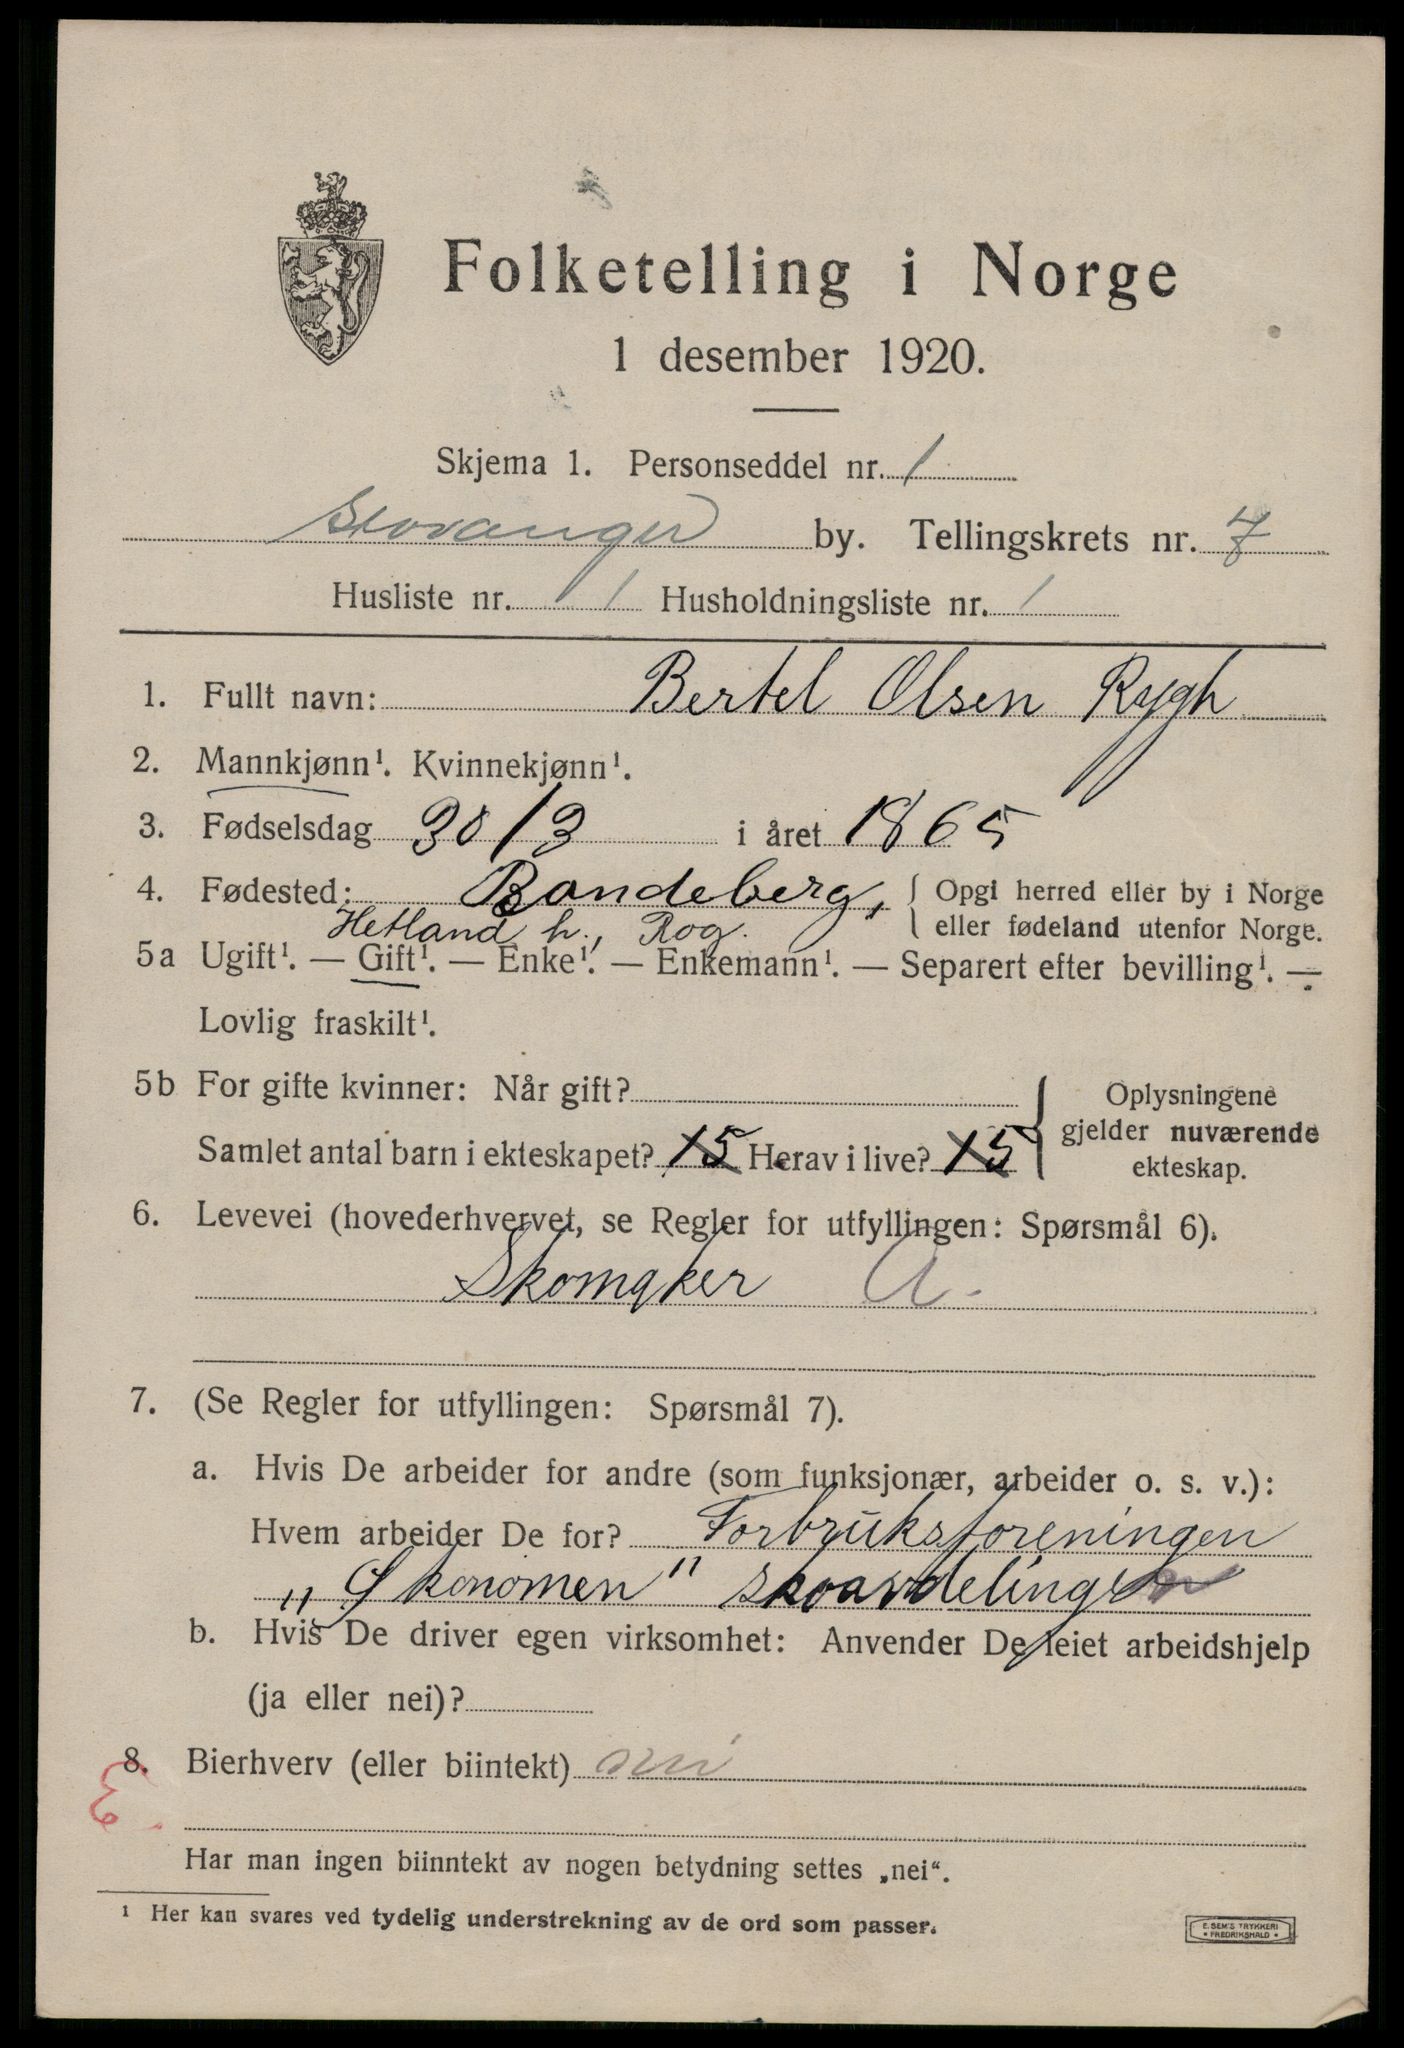 Folketelling i Norge
1 desember 1920.
Skjema 1. Personseddel nr. 1
Stavanger by. Tellingskrets nr. 7
Husliste nr. 1 Husholdningsliste nr. 1
1. Fullt navn: Bertel Olsen Rygh
2. Mannkjønn¹. Kvinnekjønn¹.
3. Fødselsdag 30/3 i året 1865
4. Fødested: Bandeberg, { Opgi herred eller by i Norge
Hetland h., Rog. eller fødeland utenfor Norge.
5a Ugift¹. — Gift¹. — Enke¹. — Enkemann¹. — Separert efter bevilling¹. —
Lovlig fraskilt¹.
5b For gifte kvinner: Når gift? } Oplysningene
gjelder nuværende
Samlet antal barn i ekteskapet? 15 Herav i live? 15
ekteskap.
6. Levevei (hovederhvervet, se Regler for utfyllingen: Spørsmål 6).
Skomaker A.
7. (Se Regler for utfyllingen: Spørsmål 7).
a. Hvis De arbeider for andre (som funksjonær, arbeider o. s. v.):
Hvem arbeider De for? Forbruksforeningen
„Økonomen" skoavdeling
b. Hvis De driver egen virksomhet: Anvender De leiet arbeidshjelp
(ja eller nei)?
8. Bierhverv (eller biintekt) nei
Har man ingen biinntekt av nogen betydning settes „nei“.
¹ Her kan svares ved tydelig understrekning av de ord som passer.
E. SEM'S TRYKKERI
• FREDRIKSHALD •